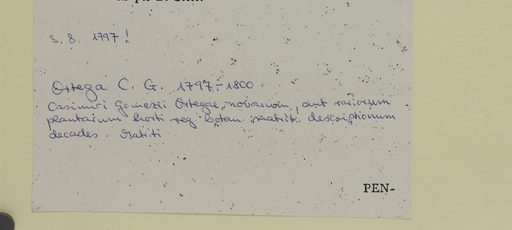 s. 8. 1797!
Ortega. C. G. 1797-1800
Casimiri Gomezii Ortegae, novarum, aut rariorum
plantarum horti reg. botan. matrit. descriptionum
decades. Matriti
PEN-